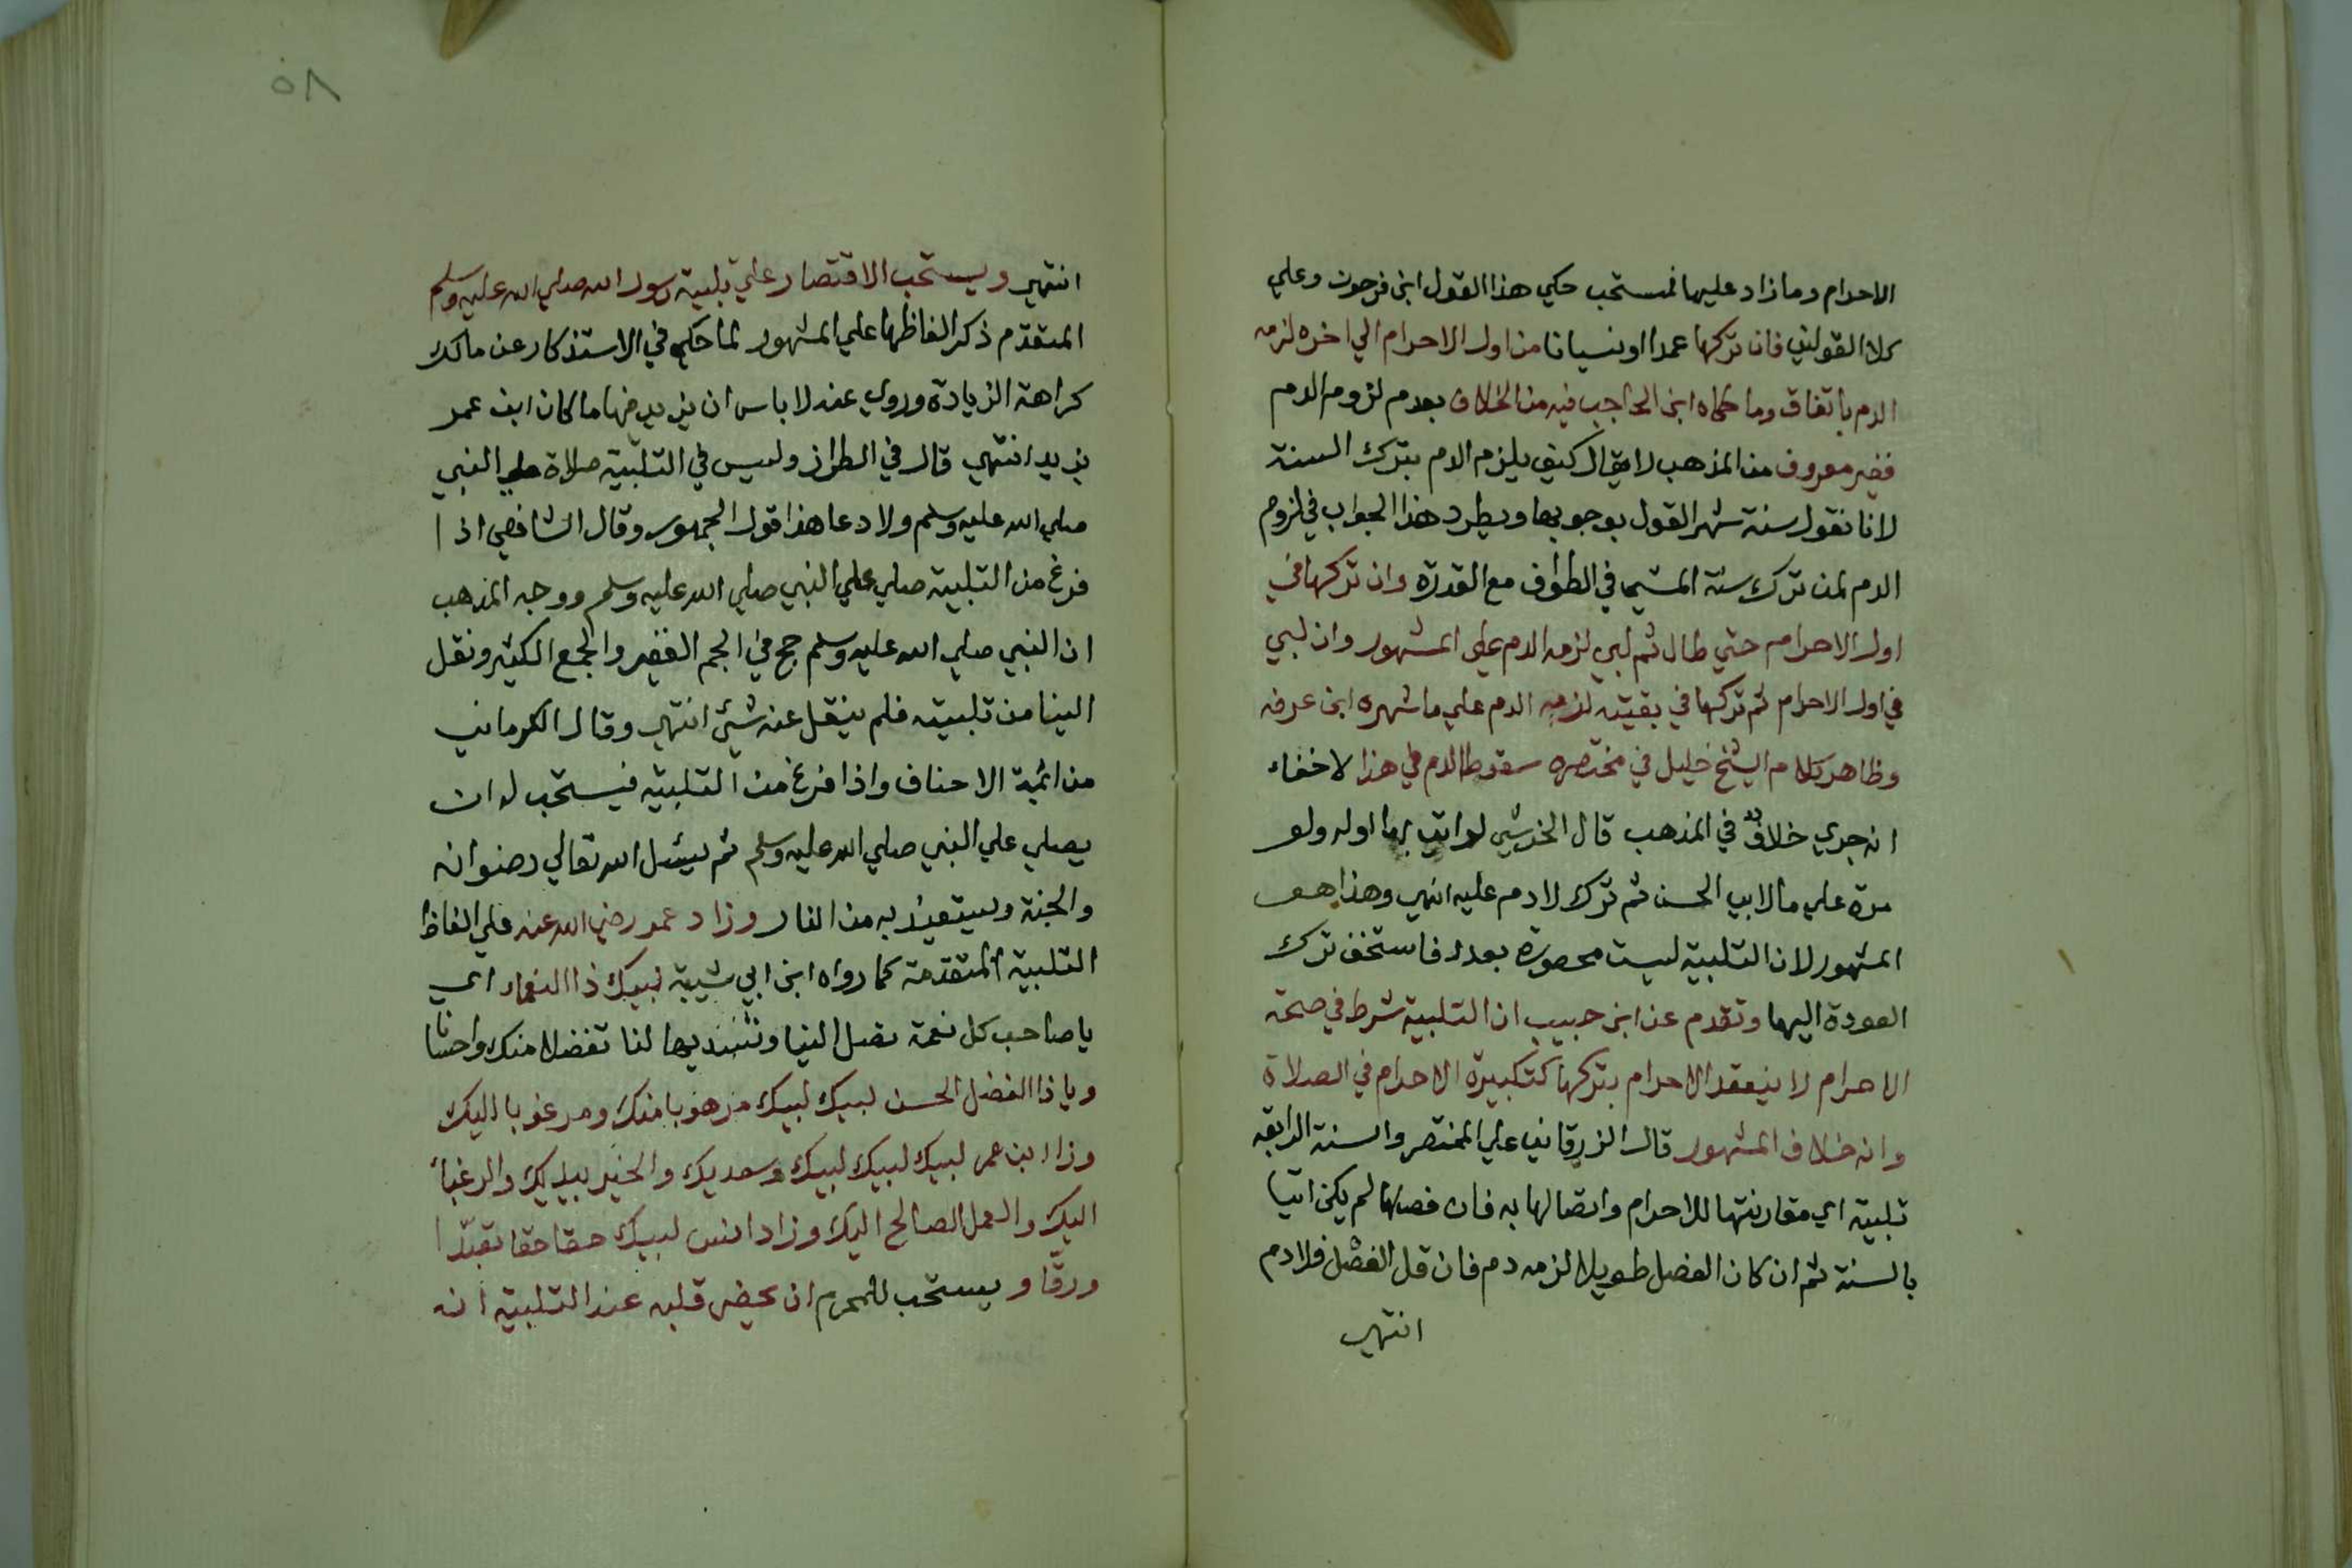 الاحرام وما زاد عليها فمستحب حكي هذا القول ابن فرحون وعلي
كلا القولين فان تركها عمدا او نسيانا من اول الاحرام الي اخره لزمه
الدم باتفاق وما حكاه ابن الحاجب فيه من الخلاف بعدم لزوم الدم
فغير معروف من المذهب لا يقال كيف يلزم الدم بترك السنة
لانا نقول سنة شهر القول بوجوبها ويطرد هذا الجواب في لزوم
الدم لمن ترك سنة المشي في الطواف مع القدرة وان تركها في
اول الاحرام حتي طال ثم لبي لزمه الدم علي المشهور وان لبي
في اول الاحرام ثم تركها في بقيته لزمه الدم علي ما شهره ابن عرفه
وظاهر كلام الشيخ خليل في مختصره سقوط الدم في هذا لا خفاء
انه جري خلاف في المذهب قال الخرشي لو اتي بها اوله ولو
مرة علي ما لابي الحسن ثم ترك لا دم عليه انتهي وهذا هو
المشهور لان التلبية ليست محصورة بعدد فاستخف ترك
العودة اليها وتقدم عن ابن حبيب ان التلبية شرط في صحة
الاحرام لا ينعقد الاحرام بتركها كتكبيرة الاحرام في الصلاة
وانه خلاف المشهور قال الزرقاني علي المختصر والسنة الرابعة
تلبية اي مقارنتها للاحرام واتصالها به فان فصلها لم يكن اتيا
بالسنة ثم ان كان الفصل طويلا لزمه دم فان قل الفصل فلا دم
انتهي
٥٨
انتهي ويستحب الاقتصار علي تلبية رسول الله صلي الله عليه وسلم
المتقدم ذكر الفاظها علي المشهور لما حكي في الاستذكار عن مالك
كراهة الزيادة وروي عنه لا باس ان يزيد فيها ما كان ابن عمر
يزيد انتهي قال في الطراز وليس في التلبية صلاة علي النبي
صلي الله عليه وسلم ولا دعا هذا قول الجمهور وقال الشافعي اذا
فرغ من التلبية صلي علي النبي صلي الله عليه وسلم ووجه المذهب
ان النبي صلي الله عليه وسلم حج في الجم الغفير والجمع الكثير ونقل
الينا من تلبيته فلم ينقل عنه شيئ انتهي وقال الكرماني
من ائمة الاحناف واذا فرغ من التلبية فيستحب له ان
يصلي علي النبي صلي الله عليه وسلم ثم يسئل الله تعالي رضوانه
والجنة ويستعيذ به من النار وزاد عمر رضي الله عنه علي الفاظ
التلبية المتقدمة كما رواه ابن ابي شيبة لبيك ذا النعماء اي
يا صاحب كل نعمة تصل الينا وتسديها لنا تفضلا منك واحسانا
ويا ذا الفضل الحسن لبيك لبيك مرهوبا منك ومرغوبا اليك
وزاد ابن عمر لبيك لبيك لبيك وسعديك والخير بيديك والرغباء
اليك والعمل الصالح اليك وزاد انس لبيك حقا حقا تعبدا
ورقا ويستحب للمحرم ان يحضر قلبه عند التلبية انه